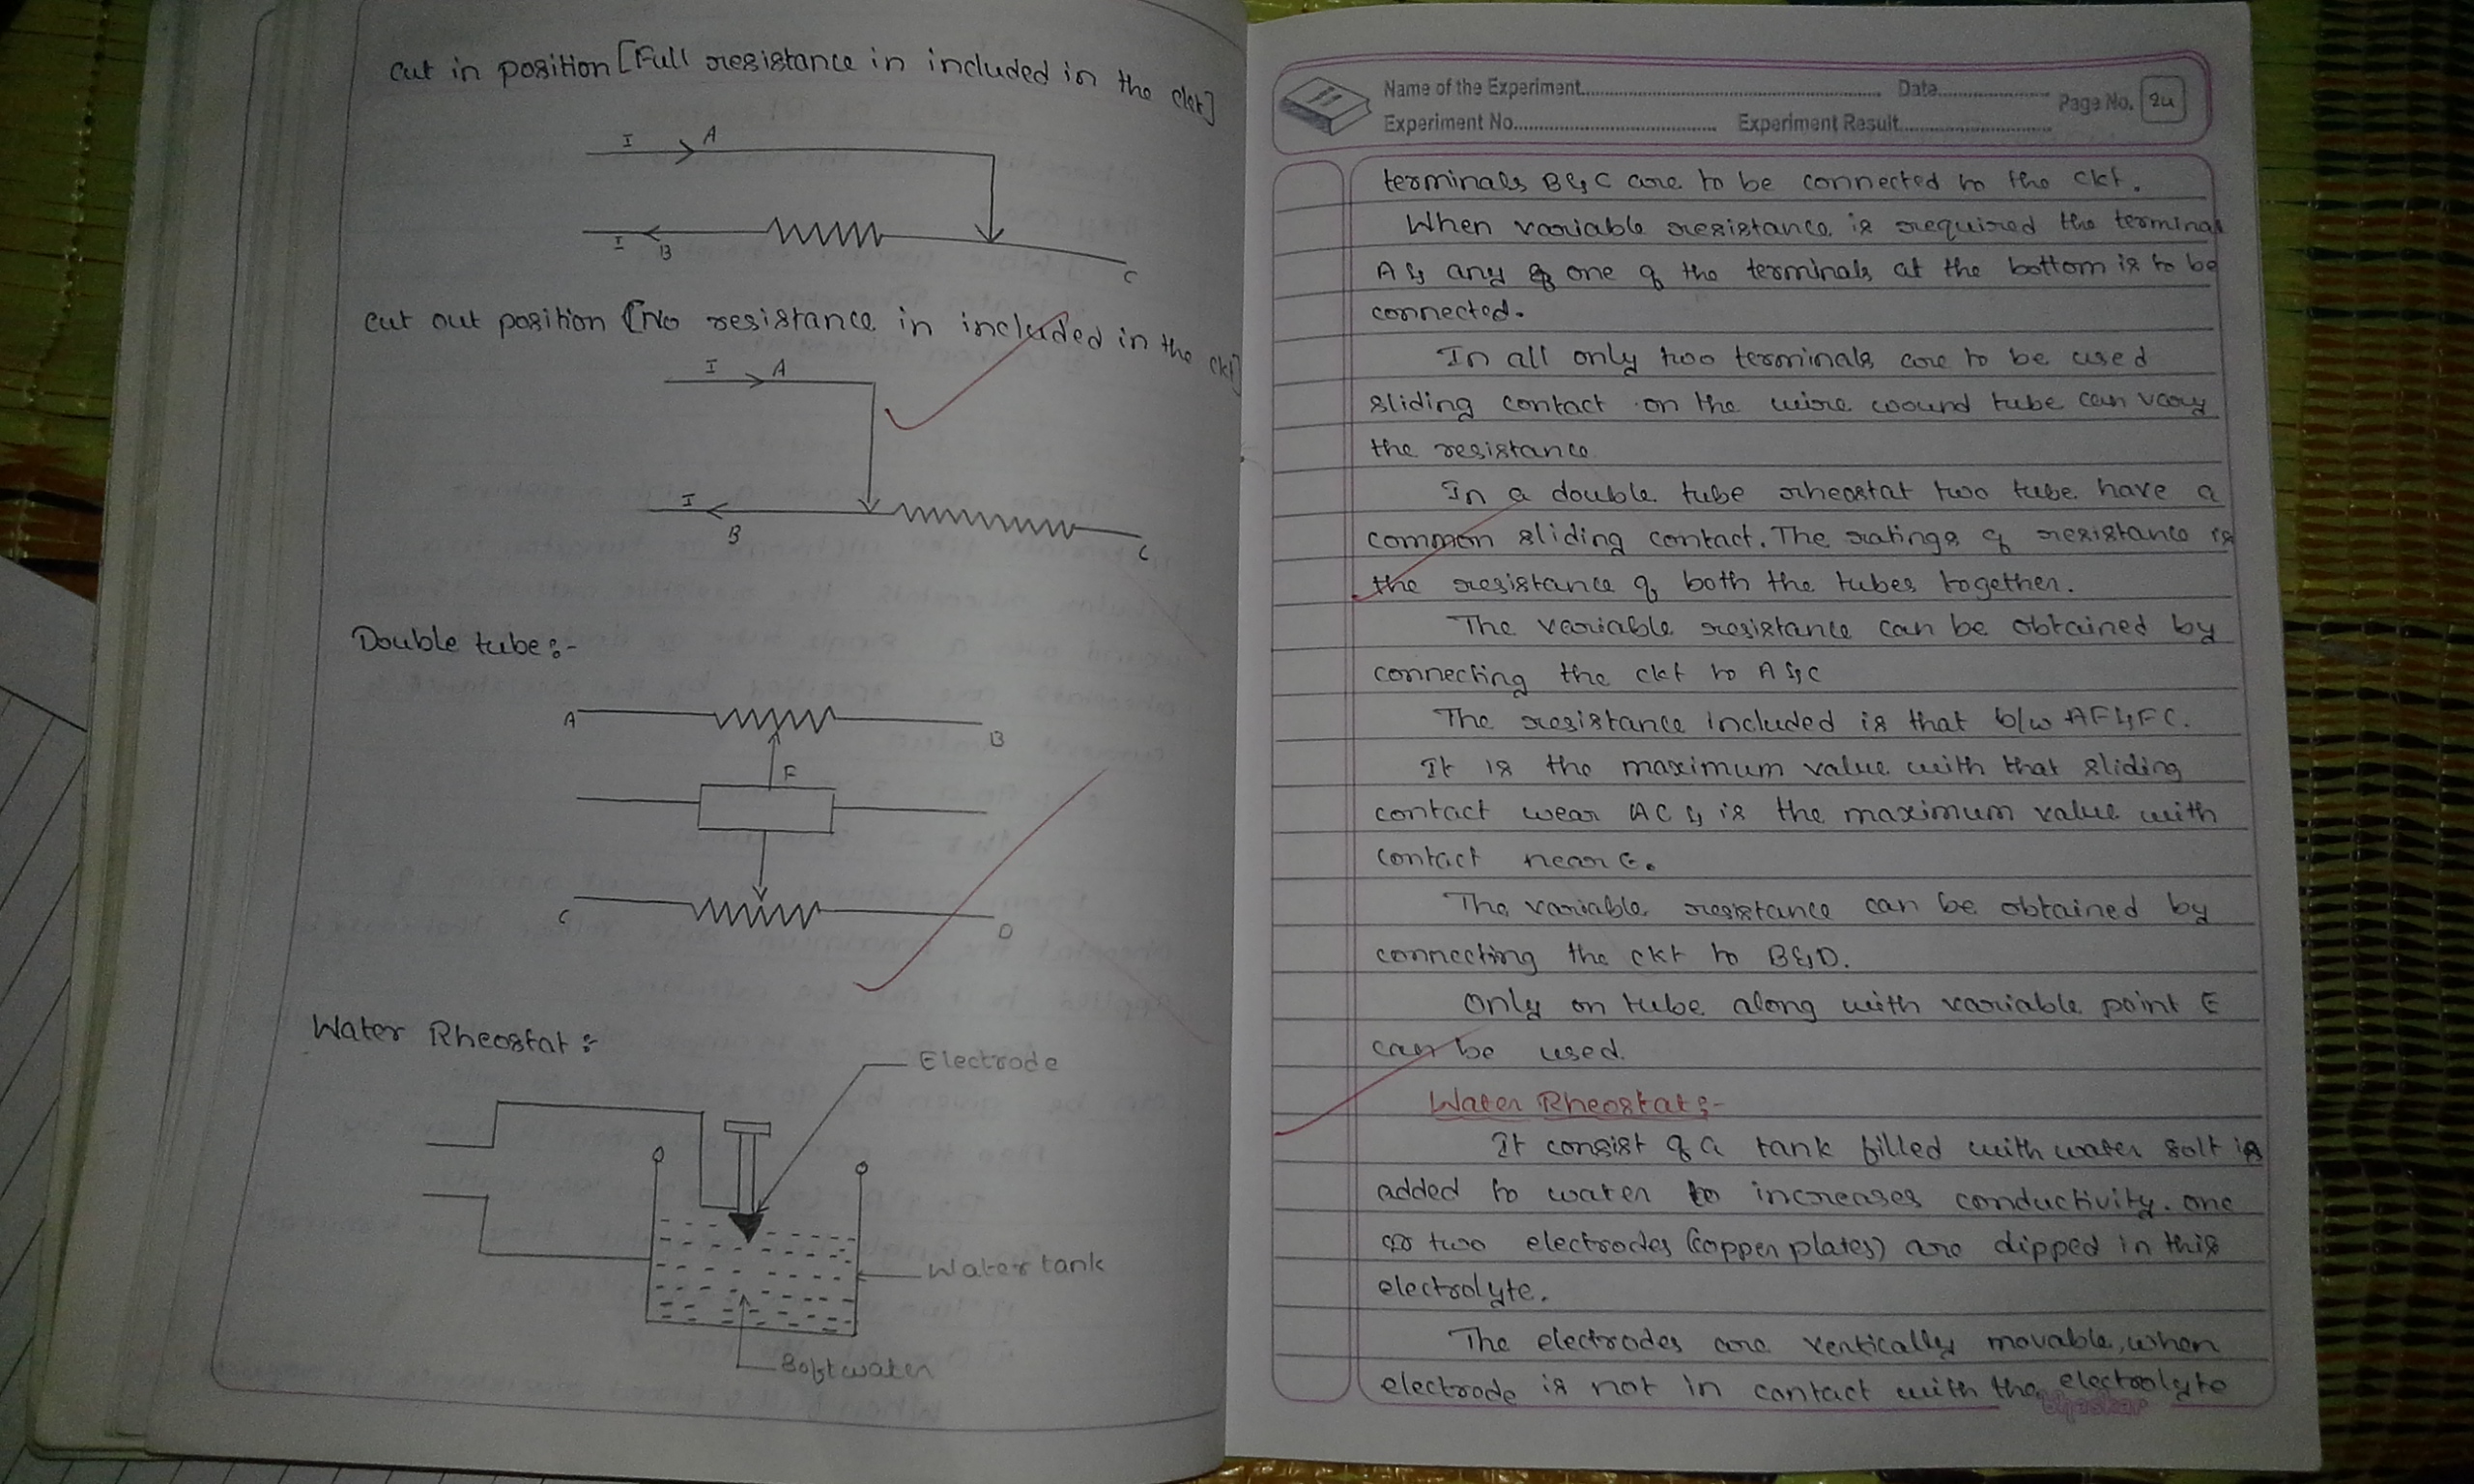 Cut in position [Full resistance in included in the ckt]
I A
I B C
Cut out position [No resistance in included in the ckt]
I A
I B C
Double tube:-
A B
F
C D
Water Rheostat:-
Electrode
Water tank
Soft water
Name of the Experiment Date Page No. 24
Experiment No. Experiment Result
terminals B & C are to be connected to the ckt.
When variable resistance is required the terminal
A & any one of the terminals at the bottom is to be
connected.
In all only two terminals are to be used
sliding contact on the wire wound tube can vary
the resistance
In a double tube rheostat two tube have a
common sliding contact. The ratings of resistance is
the resistance of both the tubes together.
The variable resistance can be obtained by
connecting the ckt to A & C
The resistance included is that b/w AF & FC.
It is the maximum value with that sliding
contact wear AC & is the maximum value with
contact near E.
The variable resistance can be obtained by
connecting the ckt to B & D.
Only on tube along with variable point E
can be used.
Water Rheostat:-
It consist of a tank filled with water salt is
added to water to increases conductivity. one
or two electrodes (copper plates) are dipped in this
electrolyte.
The electrodes are vertically movable, when
electrode is not in contact with the electrolyte
bhaskar